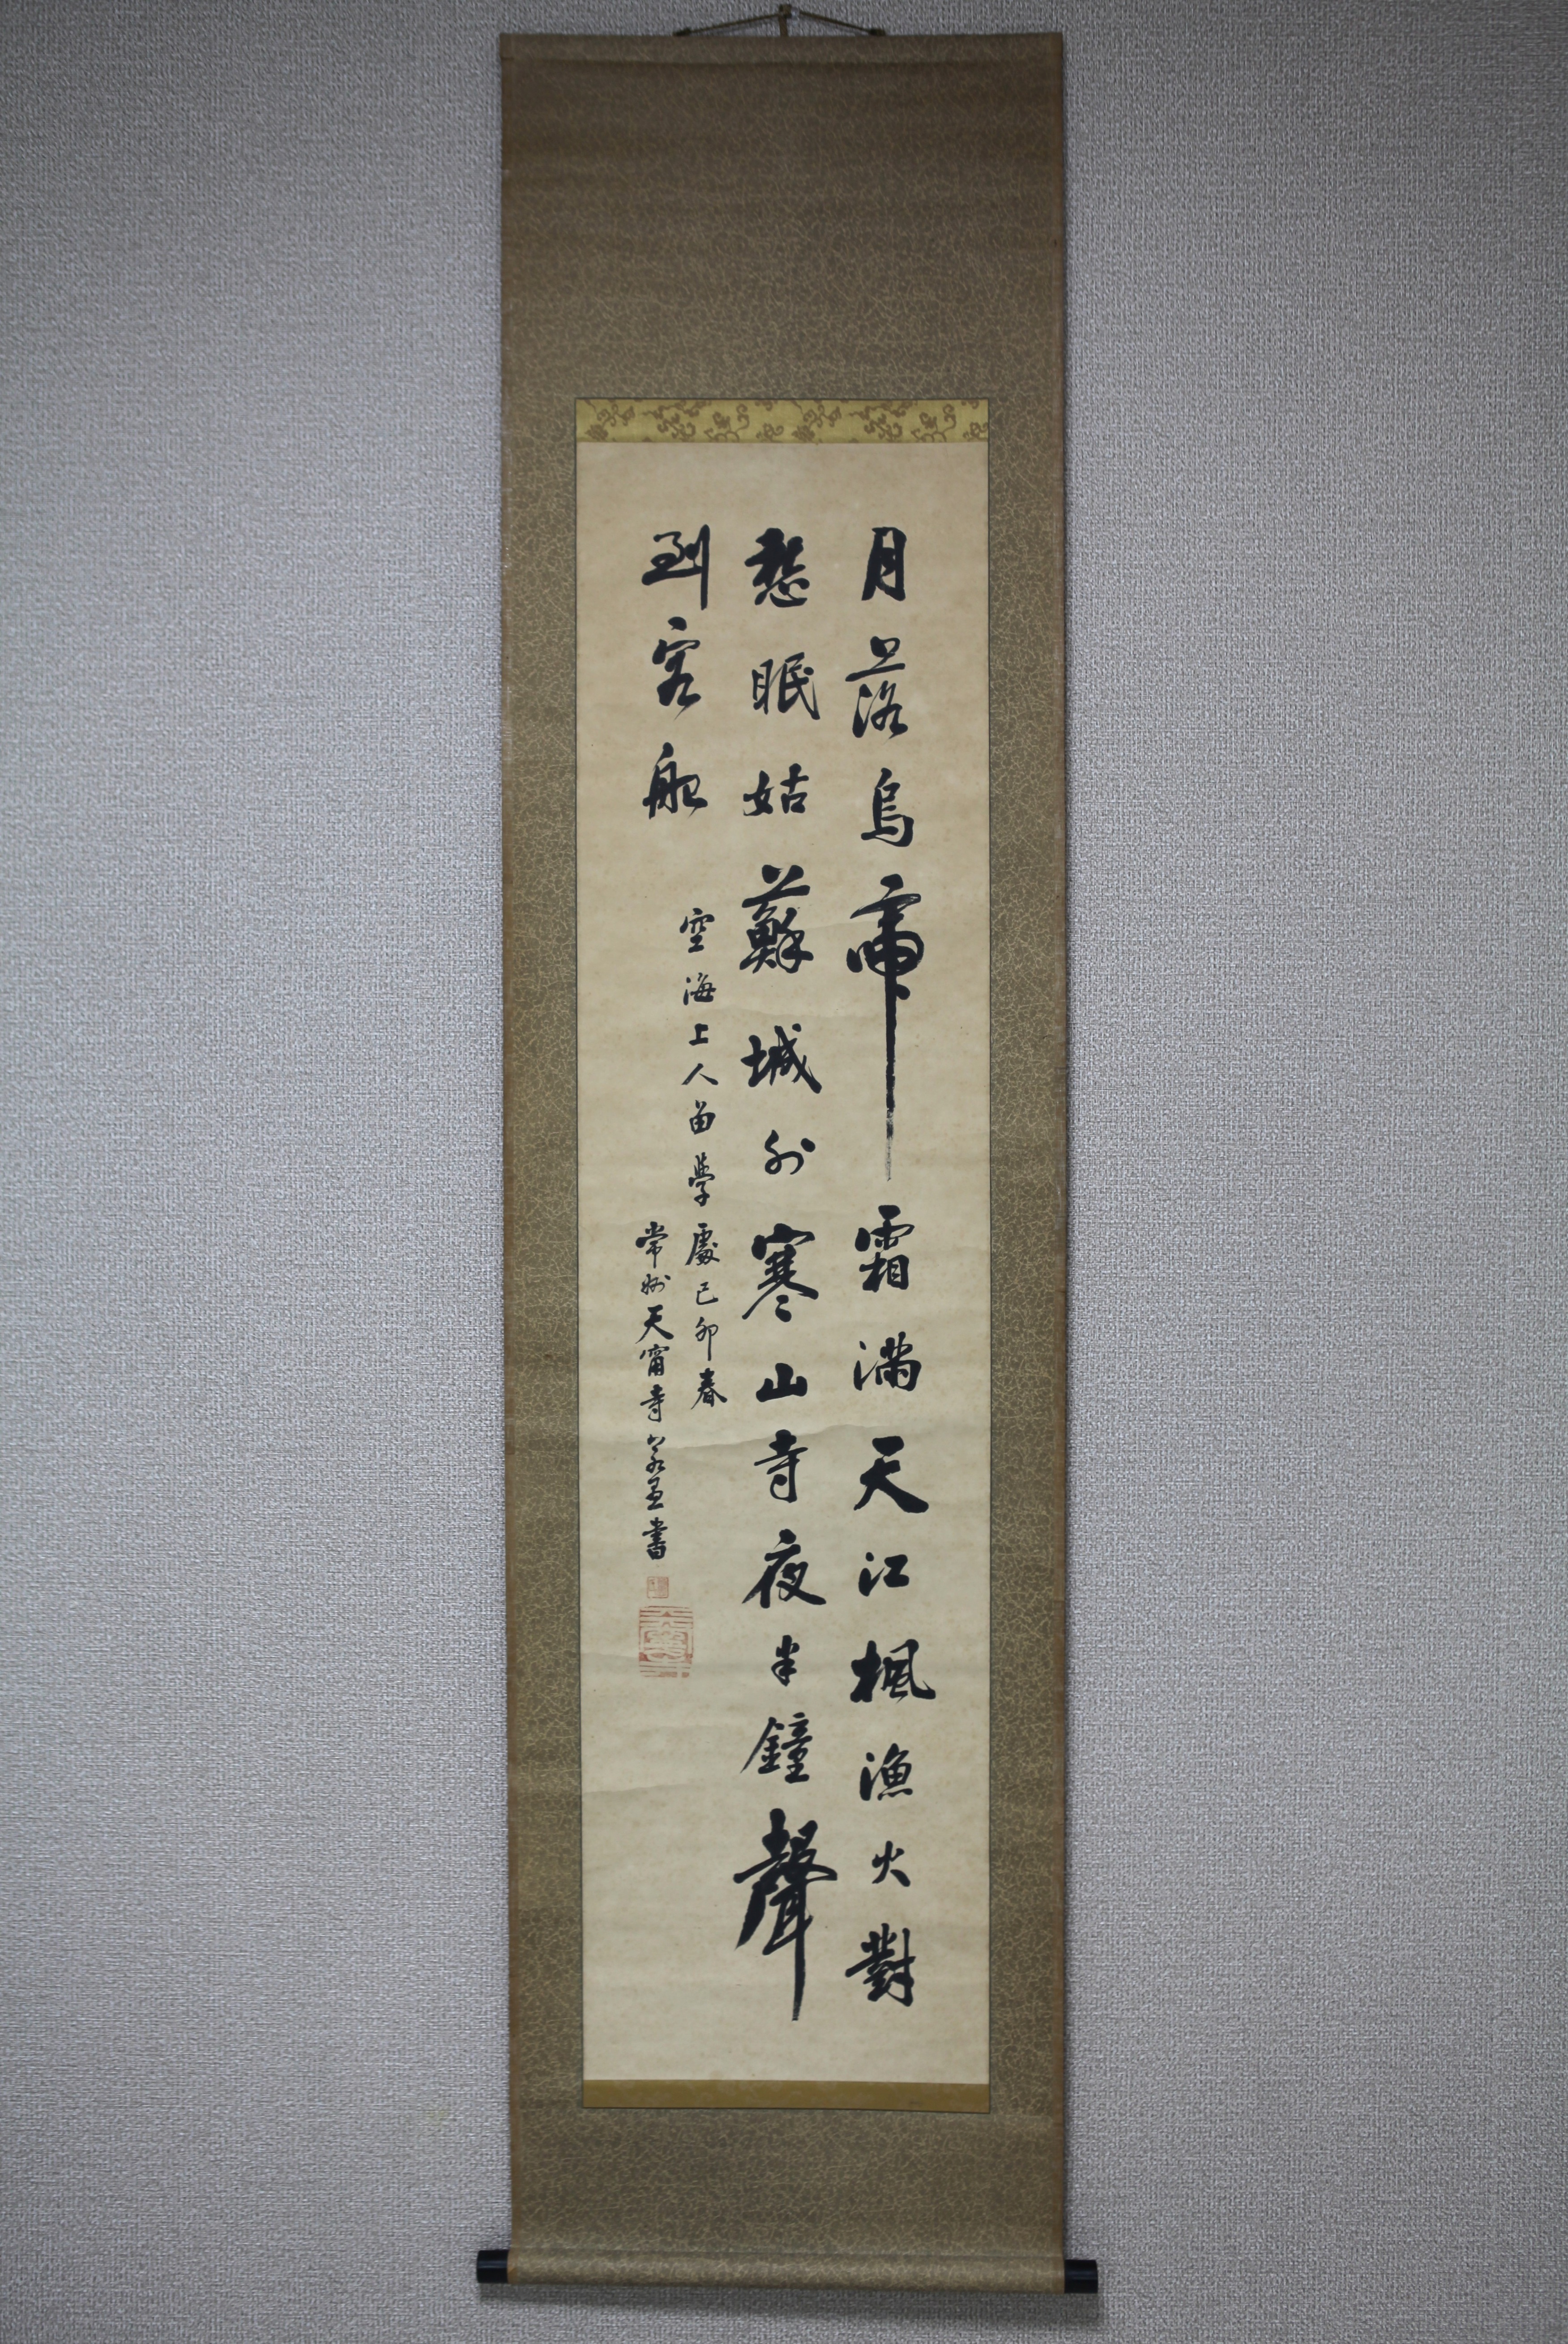 月落烏啼霜滿天江楓漁火對
愁眠姑蘇城外寒山寺夜半鐘聲
到客船
空海上人留學處己卯春
常州天甯寺書